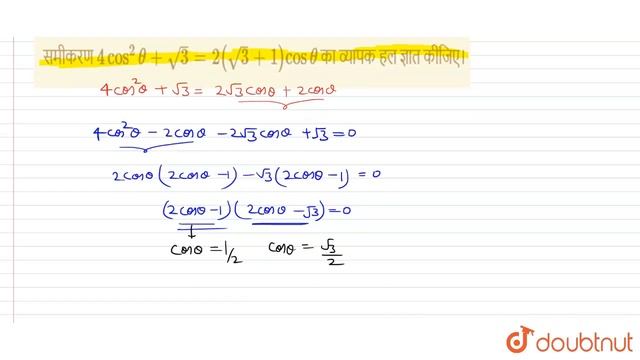 समीकरण 4cos²θ + √3 = 2(√3 + 1)cosθ का व्यापक हल ज्ञात कीजिए।
4cos²θ + √3 = 2√3cosθ + 2cosθ
4cos²θ - 2cosθ - 2√3cosθ + √3 = 0
2cosθ(2cosθ - 1) - √3(2cosθ - 1) = 0
(2cosθ - 1)(2cosθ - √3) = 0
cosθ = 1/2 cosθ = √3/2
doubtnut